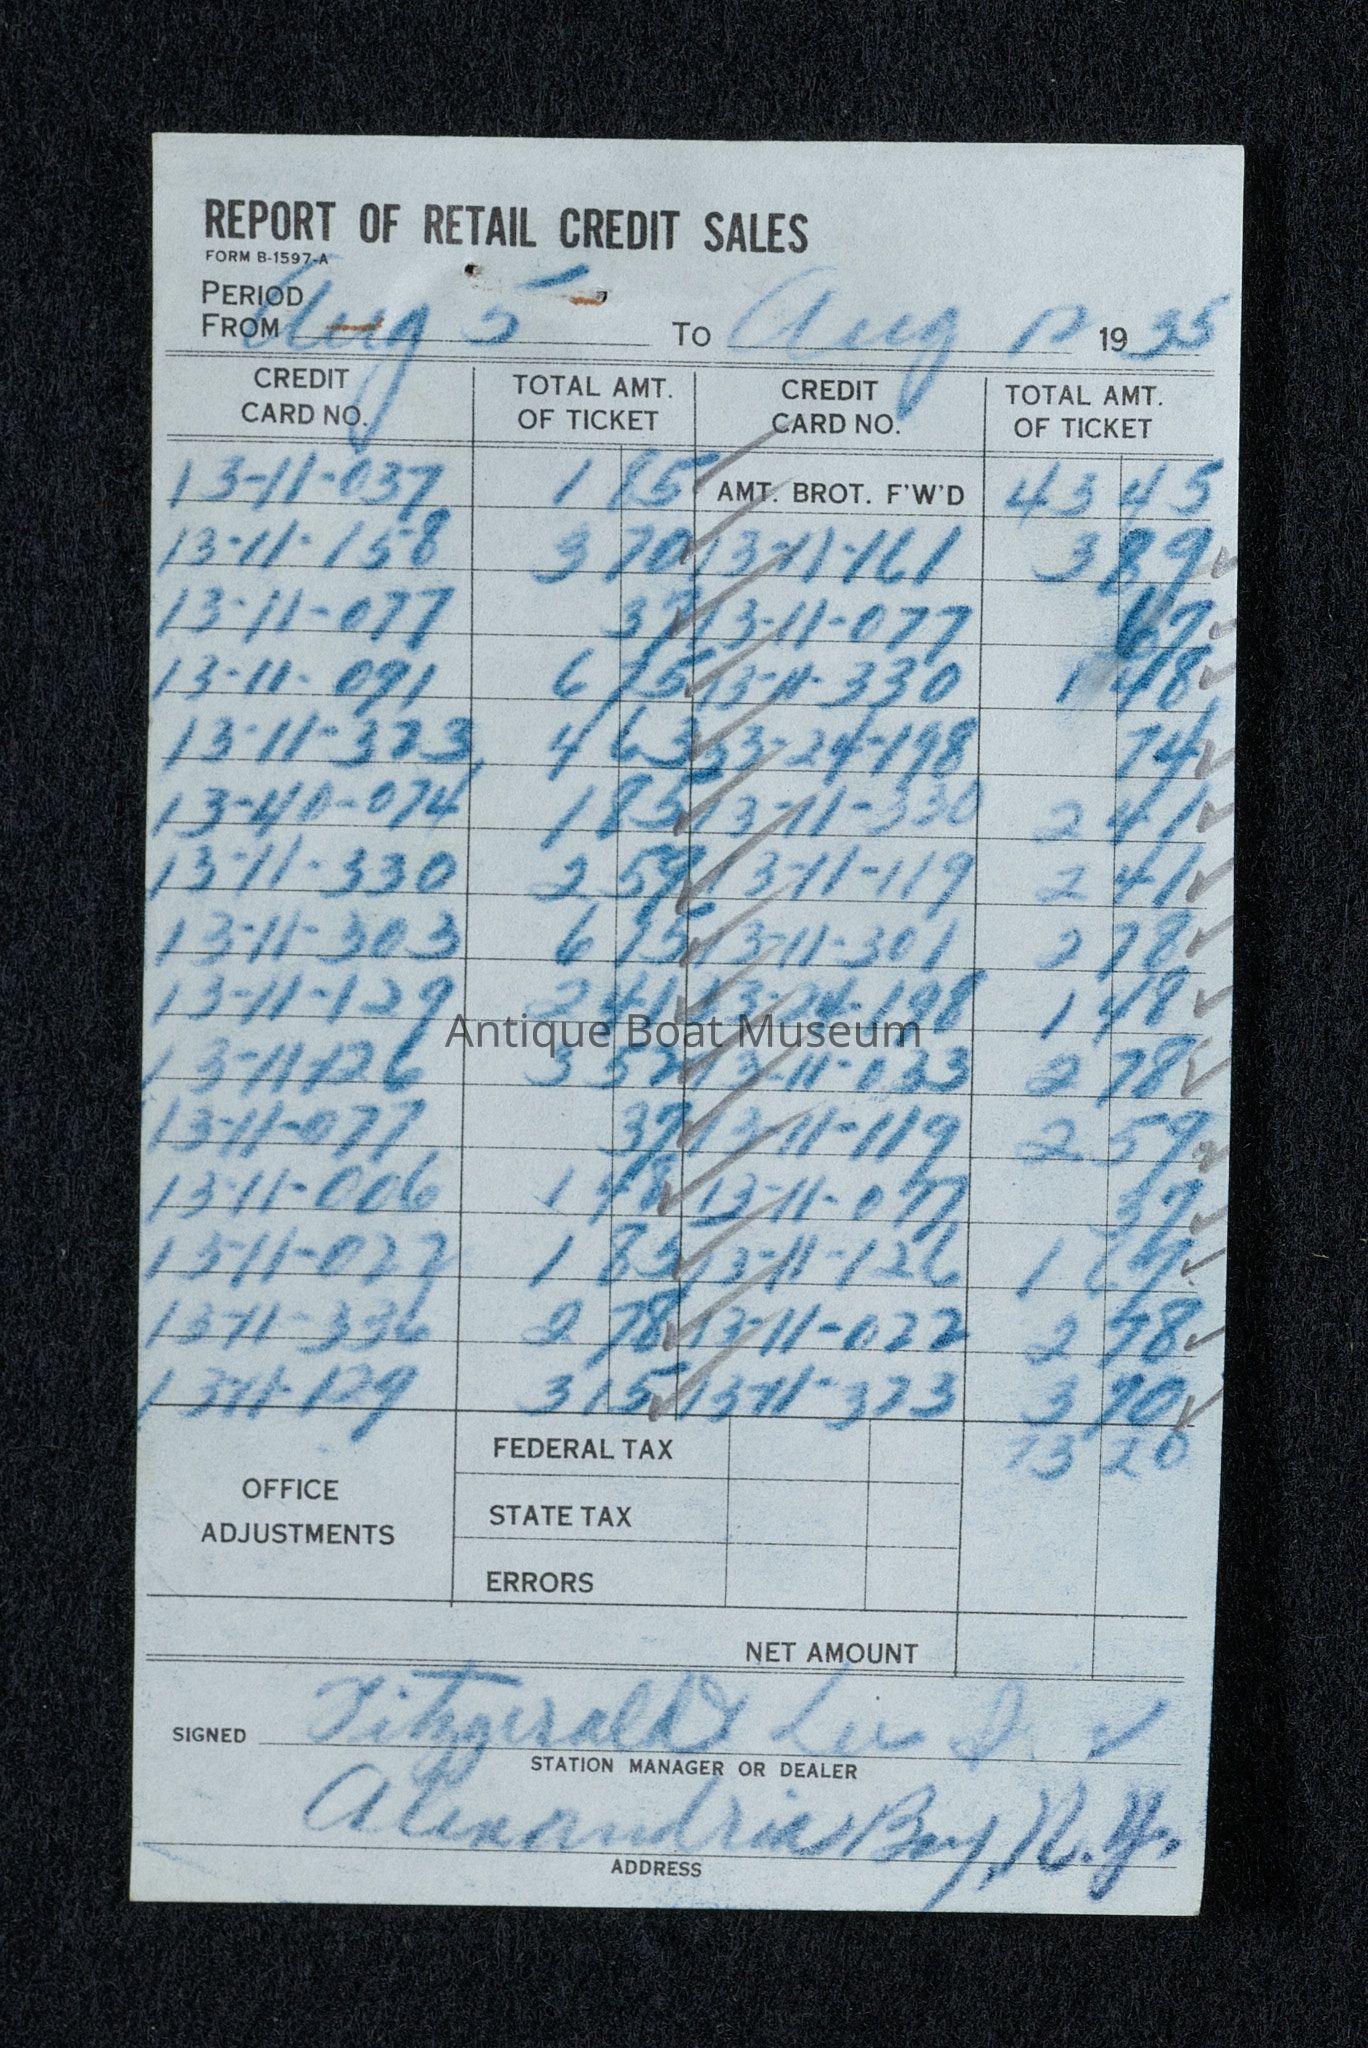 REPORT OF RETAIL CREDIT SALES
FORM B-1597-A
PERIOD
FROM Aug 5 TO Aug 1935
CREDIT CARD NO. TOTAL AMT. OF TICKET CREDIT CARD NO. TOTAL AMT. OF TICKET
13-11-037 1 85 AMT. BROT. F'W'D 43 45
13-11-158 3 70 13-11-161 3 89
13-11-077 37 13-11-077 67
13-11-091 6 13-11-330 1 48
13-11-373 4 63 53-24-198 74
13-40-074 1 85 13-11-330 2 41
13-11-330 2 59 13-11-119 2 41
13-11-303 6 13-11-301 2 78
13-11-129 2 41 13-24-198 1 48
13-11-126 3 52 13-11-033 2 78
13-11-077 37 13-11-119 2 59
13-11-006 1 48 13-11-077 37
13-11-027 1 85 13-11-126 1 67
13-11-336 2 78 13-11-022 2 78
13-11-129 3 15 13-11-373 3 70
73 20
OFFICE ADJUSTMENTS
FEDERAL TAX
STATE TAX
ERRORS
NET AMOUNT
SIGNED Fitzgerald & Lee
STATION MANAGER OR DEALER
Alexandria Bay, N.Y.
ADDRESS
Antique Boat Museum